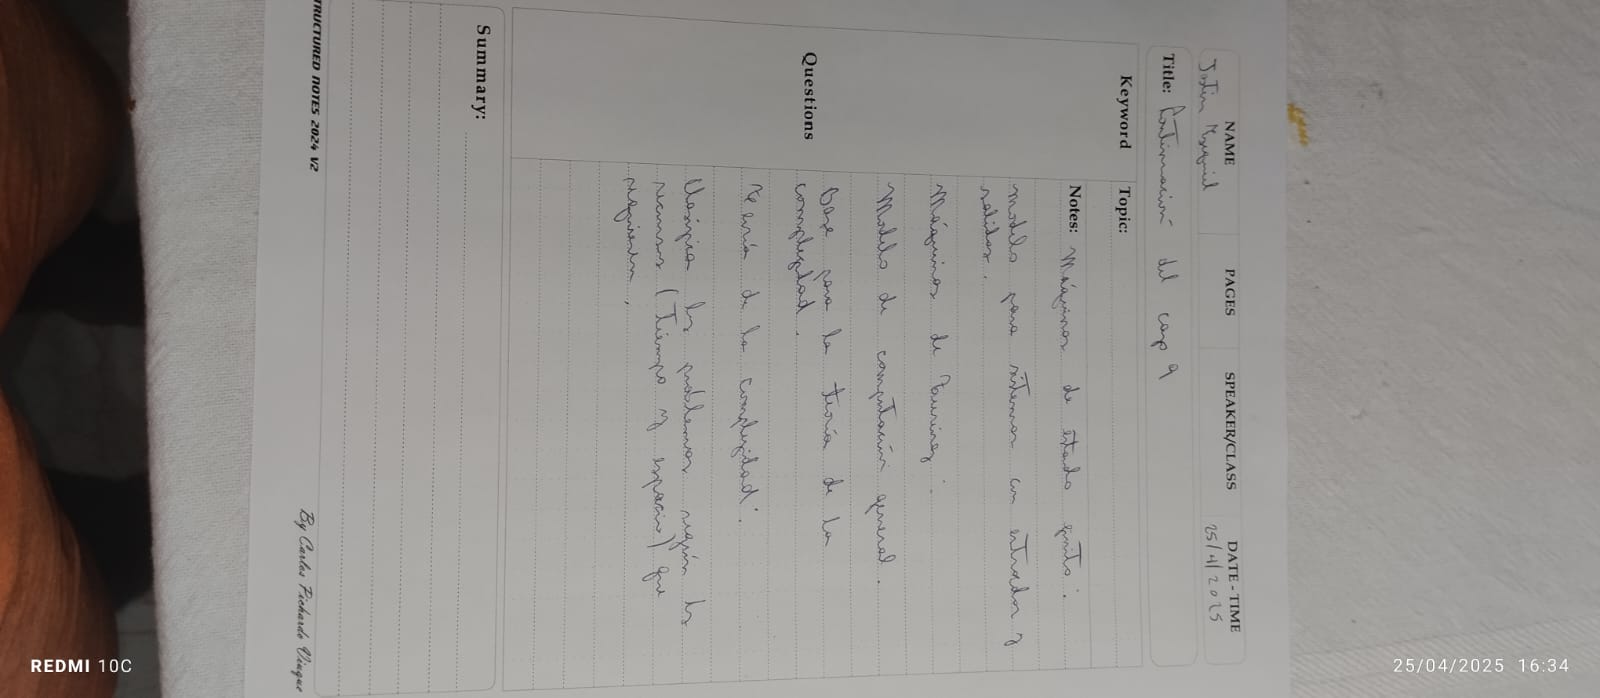 NAME PAGES SPEAKER/CLASS DATE - TIME
Justin 25/4/2025
Title: Continuación del cap 9
Keyword Topic:
Notes: Máquinas de estado finito:
modelo para sistemas con entradas y
salidas.
Máquinas de Turing:
Modelo de computación general.
Questions
Base para la teoría de la
complejidad.
Teoría de la complejidad:
Clasifica los problemas según los
recursos (Tiempo y espacio) que
requieren.
Summary:
TRUCTURED NOTES 2024 V2 By Carlos Pichardo Viuque
REDMI 10C 25/04/2025 16:34